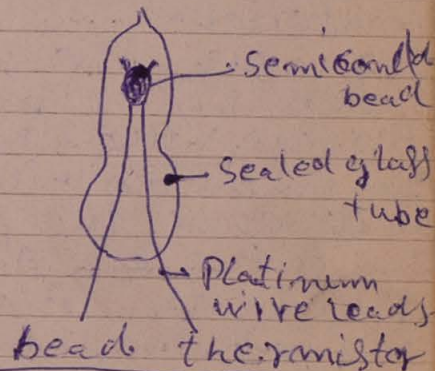 Semicond
bead
Sealed glass
tube
Platinum
wire leads
bead thermistor